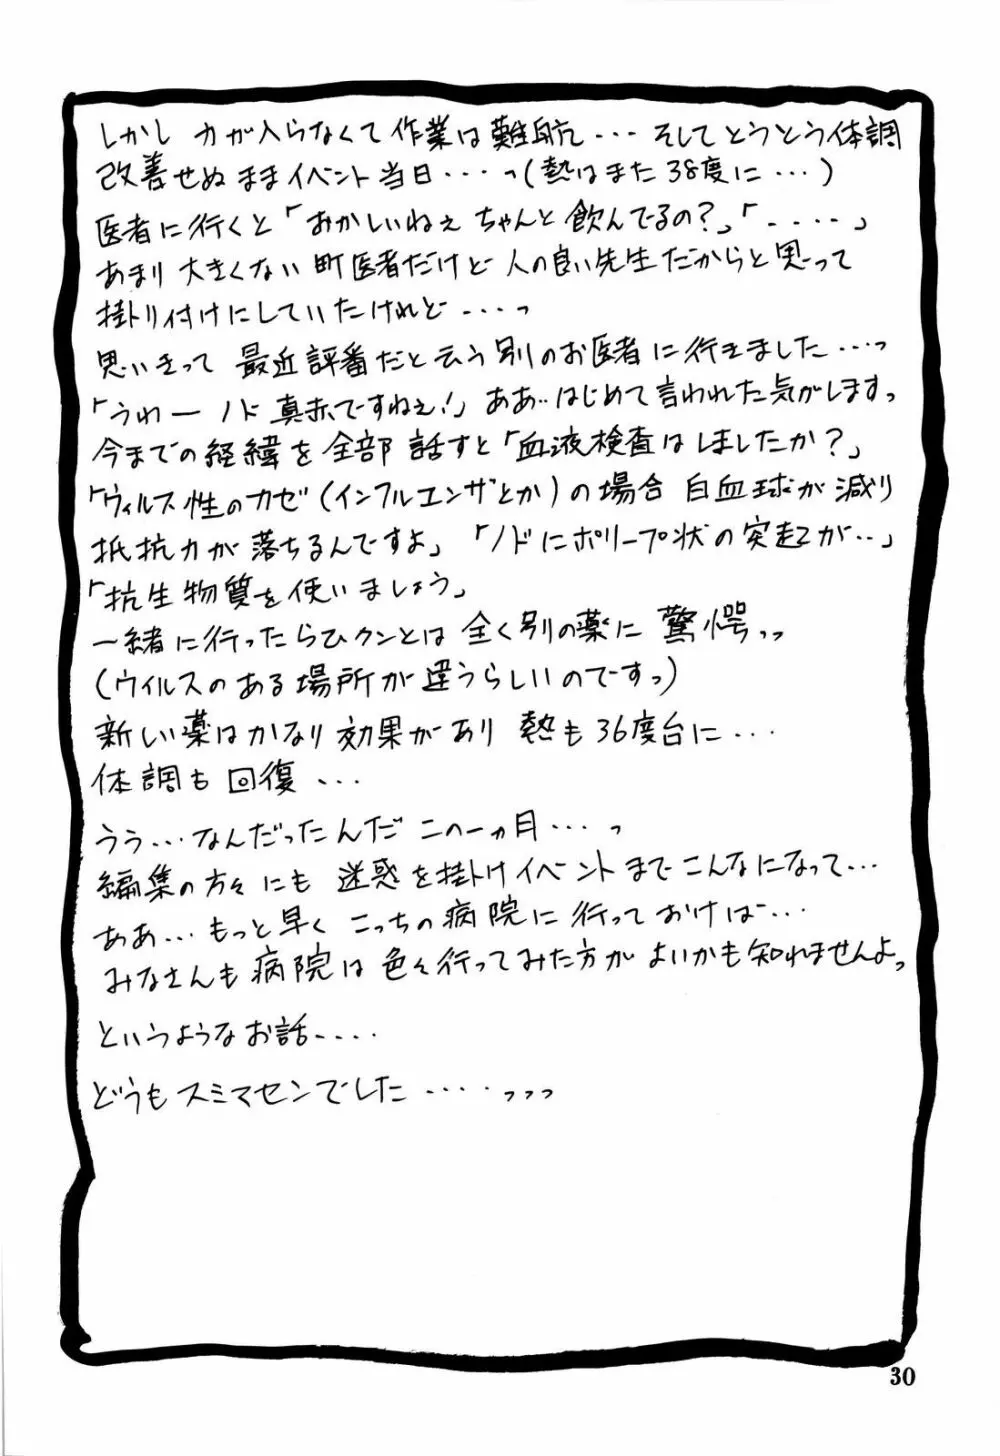 しかし 力が入らなくて作業は難航・・・そしてとうとう体調
改善せぬままイベント当日・・・っ(熱はまた38度に・・・)
医者に行くと「おかしいねぇ ちゃんと飲んでるの?」「・・・・」
あまり大きくない町医者だけど 人の良い先生だからと思って
掛り付けにしていたけれど・・・・っ
思いきって 最近評番だと云う別のお医者に行きました・・・っ
「うわー ノド真赤ですねぇ!」ああ・・はじめて言われた気がしますっ
今までの経緯を全部話すと「血液検査はしましたか?」
「ウィルス性のカゼ(インフルエンザとか)の場合 白血球が減り
抵抗力が落ちるんですよ」「ノドにポリープ状の突起が・・」
「抗生物質を使いましょう」
一緒に行ったらひクンとは全く別の薬に驚愕っっ
(ウイルスのある場所が違うらしいのですっ)
新しい薬はかなり効果があり 熱も36度台に・・・
体調も回復・・・
うう・・・なんだったんだ この一ヵ月・・・っ
編集の方々にも迷惑を掛けイベントまでこんなになって・・・
ああ・・・もっと早く こっちの病院に行っておけば・・・
みなさんも病院は色々行ってみた方がよいかも知れませんよっ
というようなお話・・・・
どうもスミマセンでした・・・・っっっ
30